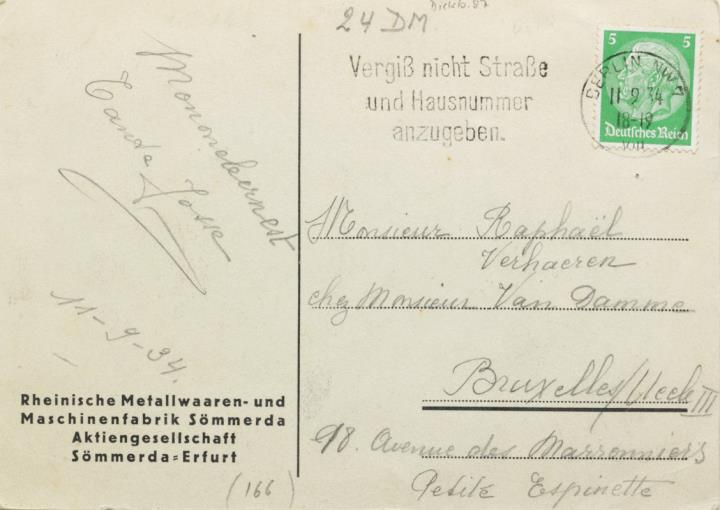 24 DM
Vergiß nicht Straße
und Hausnummer
anzugeben.
BERLIN NW 7
11 9 34
18-19
5 5
Deutsches Reich
Tante
11-9-34.
Rheinische Metallwaaren- und
Maschinenfabrik Sömmerda
Aktiengesellschaft
Sömmerda=Erfurt
(166)
Monsieur Raphaël
Verhaeren
chez Monsieur Van Damme
Bruxelles/Uccle III
98. Avenue des Marronniers
Petite Espinette